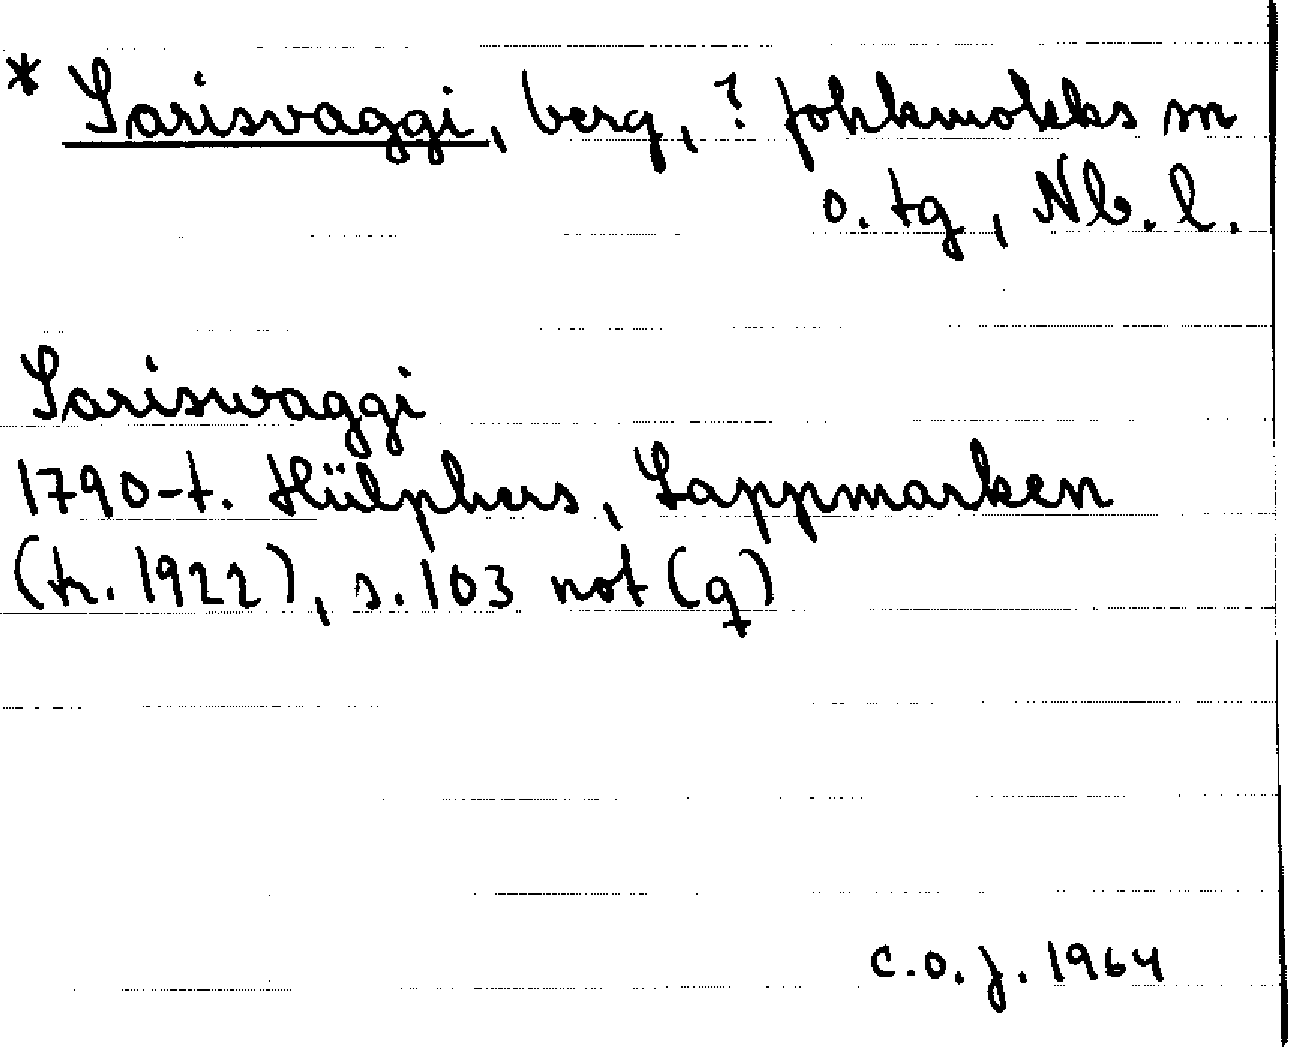 * Sarisvaggi, berg, ? Jokkmokks sn
o. tg, Nb. l.
Sariswaggi
1790-t. Hülphers, Lappmarken
(tr. 1922), s. 103 not (q)
C.O.J. 1964